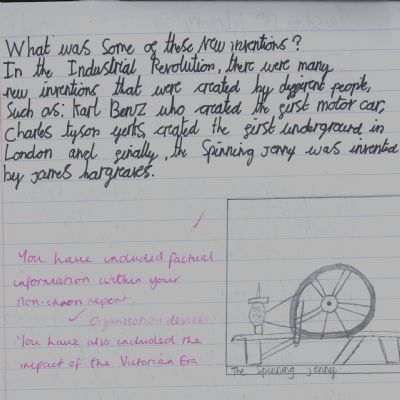 What was Some of these New inventions?
In the Industrial Revolution, there were many
new inventions that were created by different people,
Such as: Karl Benz who created the first motor car,
Charles tyson yerks created the first underground in
London and finally, the Spinning Jenny was invented
by james hargreaves.
You have included factual
information within your
non-chron report.
Organisation devices
You have also included the
impact of the Victorian Era
The Spinning Jenny